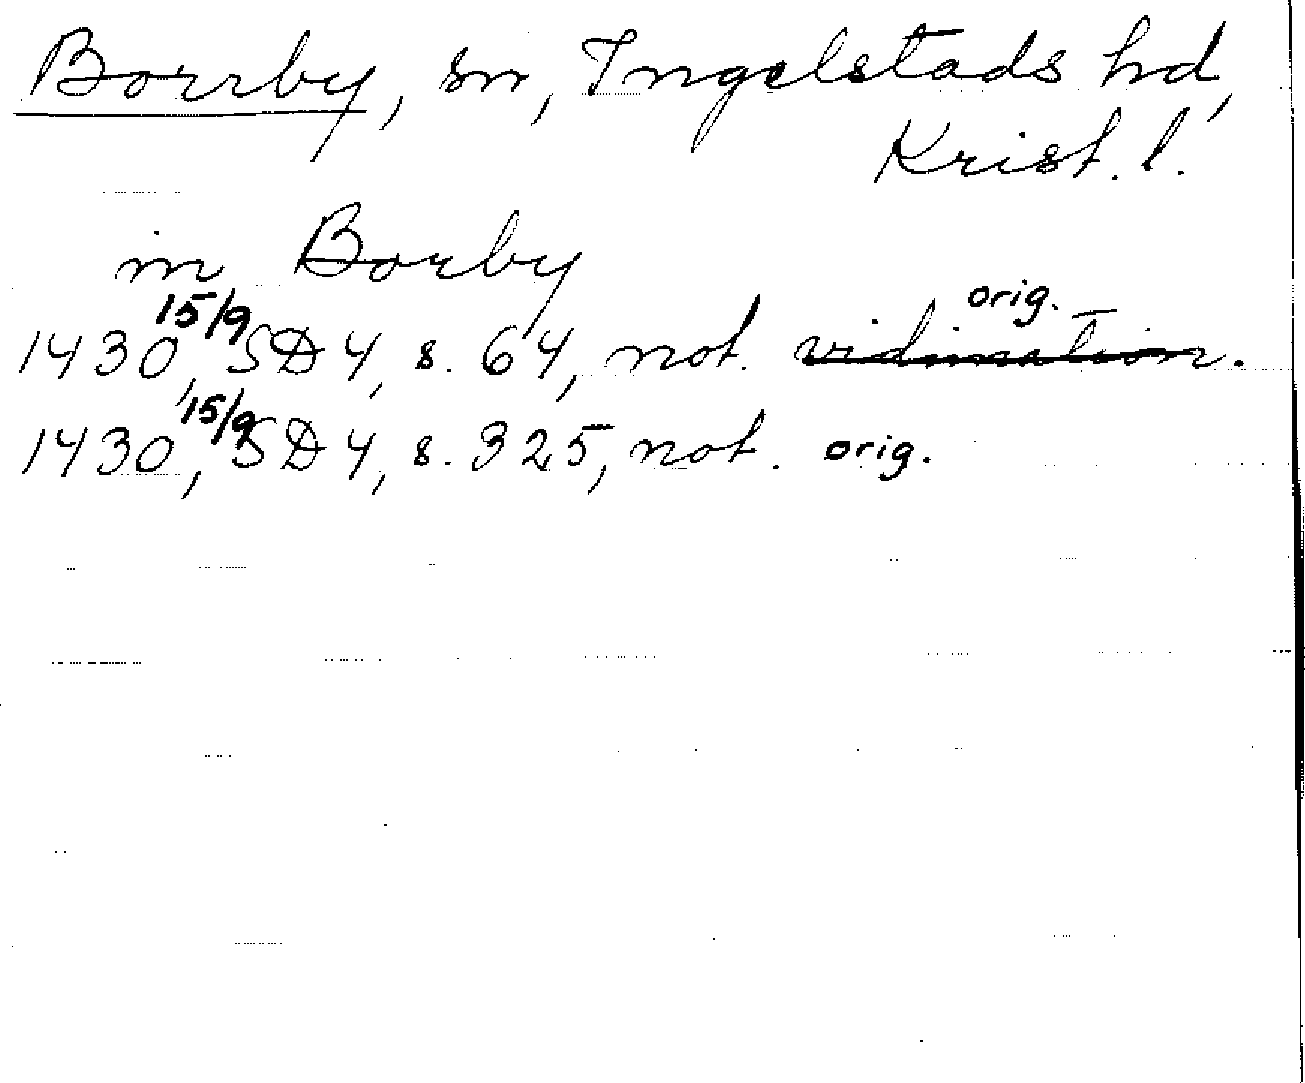 Borrby, sn, Ingelstads hd,
Krist. l.
in Borby
1430, 15/9 SD 4, s. 64, not. vidimation. orig.
1430, 15/9 SD 4, s. 325, not. orig.